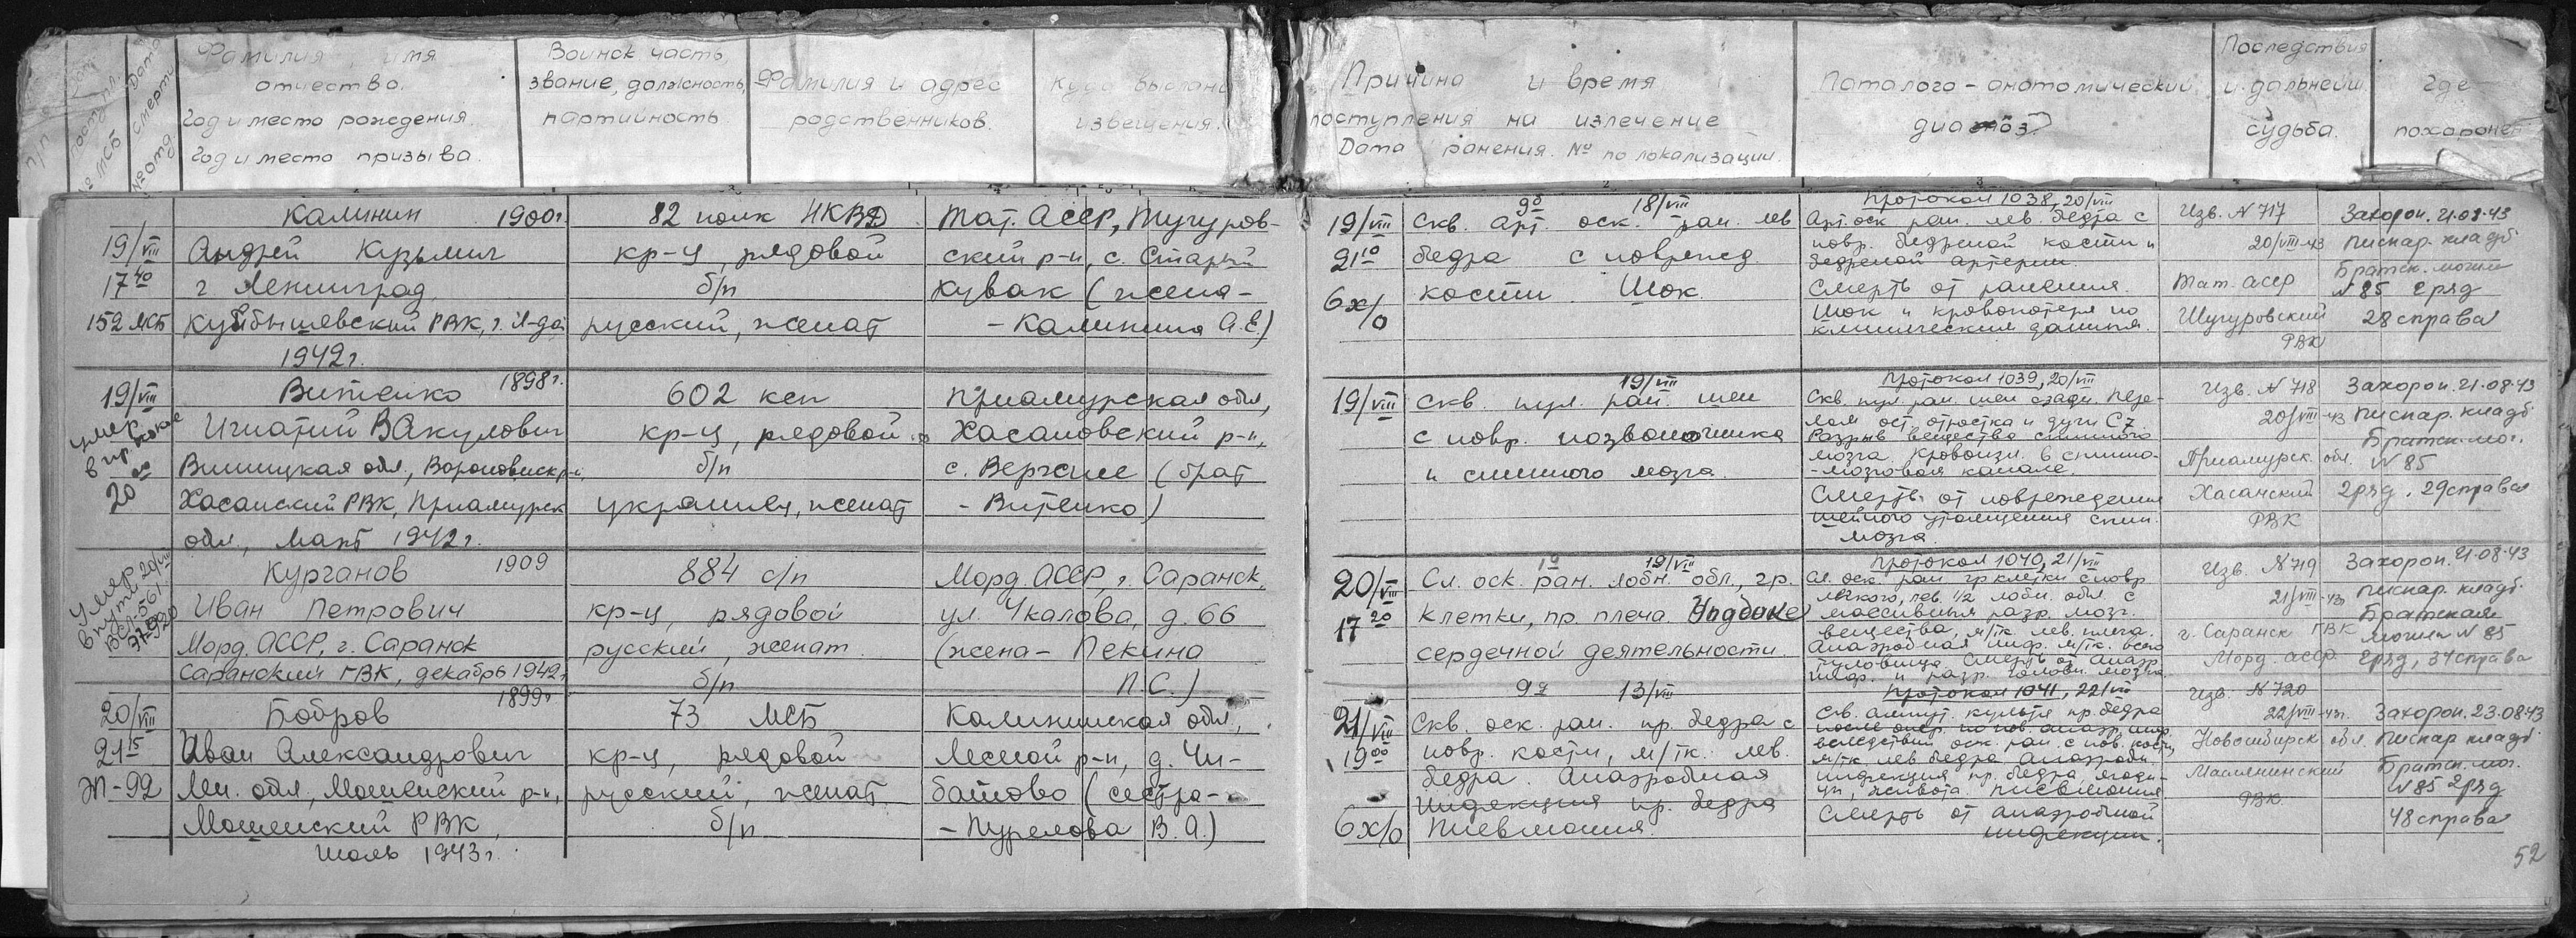 Фамилия, имя
отчество.
Год и место рождения.
Год и место призыва.
Воинск. часть,
звание, должность,
партийность
Фамилия и адрес
родственников.
куда выслано
извещения.
Причина и время
поступления на излечение
Дата ранения. № по локализации.
Паталого-анатомический
диагноз.
Последствия
и дальнейш.
судьба.
Где
похоронен
19/VIII
17 40
152 МСБ
Калинин 1900г.
Андрей Кузьмич
г. Ленинград
Куйбышевский РВК, г. Л-да
1942г.
82 полк НКВД
кр-ц, рядовой
б/п
русский, женат
Тат. АССР, Тугуров-
ский р-н, с. Старый
Кувак (жена-
- Калинина А.Е.)
19/VIII
21 10
6х/о
9б 18/VIII
Скв. арт. оск. ран. лев
бедра с поврежд.
кости. Шок.
Протокол 1038, 20/VIII
Арт. оск. ран. лев. бедра с
повр. бедреной кости и
бедреной артерии.
Смерть от ранения.
Шок и кровопотеря по
клиническим данным.
Изв. N 717
20/VIII-43
Тат. АССР
Шугуровский
РВК
Захорон. 21.08.43
Пискар. кладб.
Братск. могила
N 85 2ряд
28 справа
19/VIII
20 00
Витенко 1898г.
Игнатий Вакулович
Винницкая обл., Вороновиск р-н,
Хасанский РВК, Приамурск
обл., Март 1942г.
602 ксп
кр-ц, рядовой
б/п
украинец, женат
Приамурская обл,
Хасановский р-н,
с. Верхние (брат
- Витенко)
19/VIII
19/VIII
Скв. пул. ран. шеи
с повр. позвоночника
и спинного мозга.
Протокол 1039, 20/VIII
Скв. пул. ран. шеи сзади. Пере-
лом ост. отростка и дуги С7.
Разрыв вещества спинного
мозга. Кровоизл. в спинно-
-мозговом канале.
Смерть от повреждения
шейного утолщения спин.
мозга.
Изв. N 718
20/VIII-43
Приамурск. обл.
Хасанский
РВК
Захорон. 21.08.43
Пискар. кладб.
Братск. мог.
N 85
2ряд. 29справа
Умер
в пути 20/VIII
Курганов 1909
Иван Петрович
Морд. АССР, г. Саранск
Саранский ГВК, декабрь 1942г
884 с/п
кр-ц, рядовой
русский, женат.
б/п
Морд. АССР, г. Саранск,
ул. Чкалова, д. 66
(жена - Пекина
П.С.)
20/VIII
17 20
19/VIII
Сл. оск. ран. лобн. обл., гр.
клетки, пр. плеча. Упадоке
сердечной деятельности.
Протокол 1040, 21/VIII
Сл. оск. ран. гр клетки с повр
легкого, лев. 1/2 лобн. обл. с
массивным разр. мозг.
вещества, м/тк. лев. плеча.
Анаэробная инф. м/тк. всего
туловища. Смерть от анаэр.
инф. и разр. головн. мозга.
Изв. N 719
21/VIII-43г.
г. Саранск ГВК
Морд. АССР
Захорон. 21.08.43
Пискар. кладб.
Братская
могила N 85
2ряд, 34 справа
20/VIII
21 15
Ж-92
Бобров 1899г
Иван Александрович
Лен. обл, Мошенский р-н,
Мошенский РВК,
Июль 1943г.
73 МСБ
кр-ц, рядовой
русский, женат.
б/п
Калининская обл,
Лесной р-н, д. Чи-
батово (сестра-
- Пурелова В.А.)
21/VIII
19 00
6х/о
13/VIII
Скв. оск. ран. пр. бедра с
повр. кости, м/тк. лев.
бедра. Анаэробная
инфекция пр. бедра
Пневмония.
Протокол 1041, 22/VIII
Св. ампут. культя пр. бедра
после опер. по пов. анаэр. инф.
вследствии оск. ран. с пов. кости,
м/тк. лев бедра. Анаэробн.
инфекция пр. бедра, ягоди-
цы, живота. Пневмония
Смерть от анаэробной
инфекции.
Изв. N 720
22/VIII-43г.
Новосибирск обл.
Маслянинский
РВК
Захорон. 23.08.43
Пискар кладб.
Братск. мог.
N 85 2ряд
48 справа
52